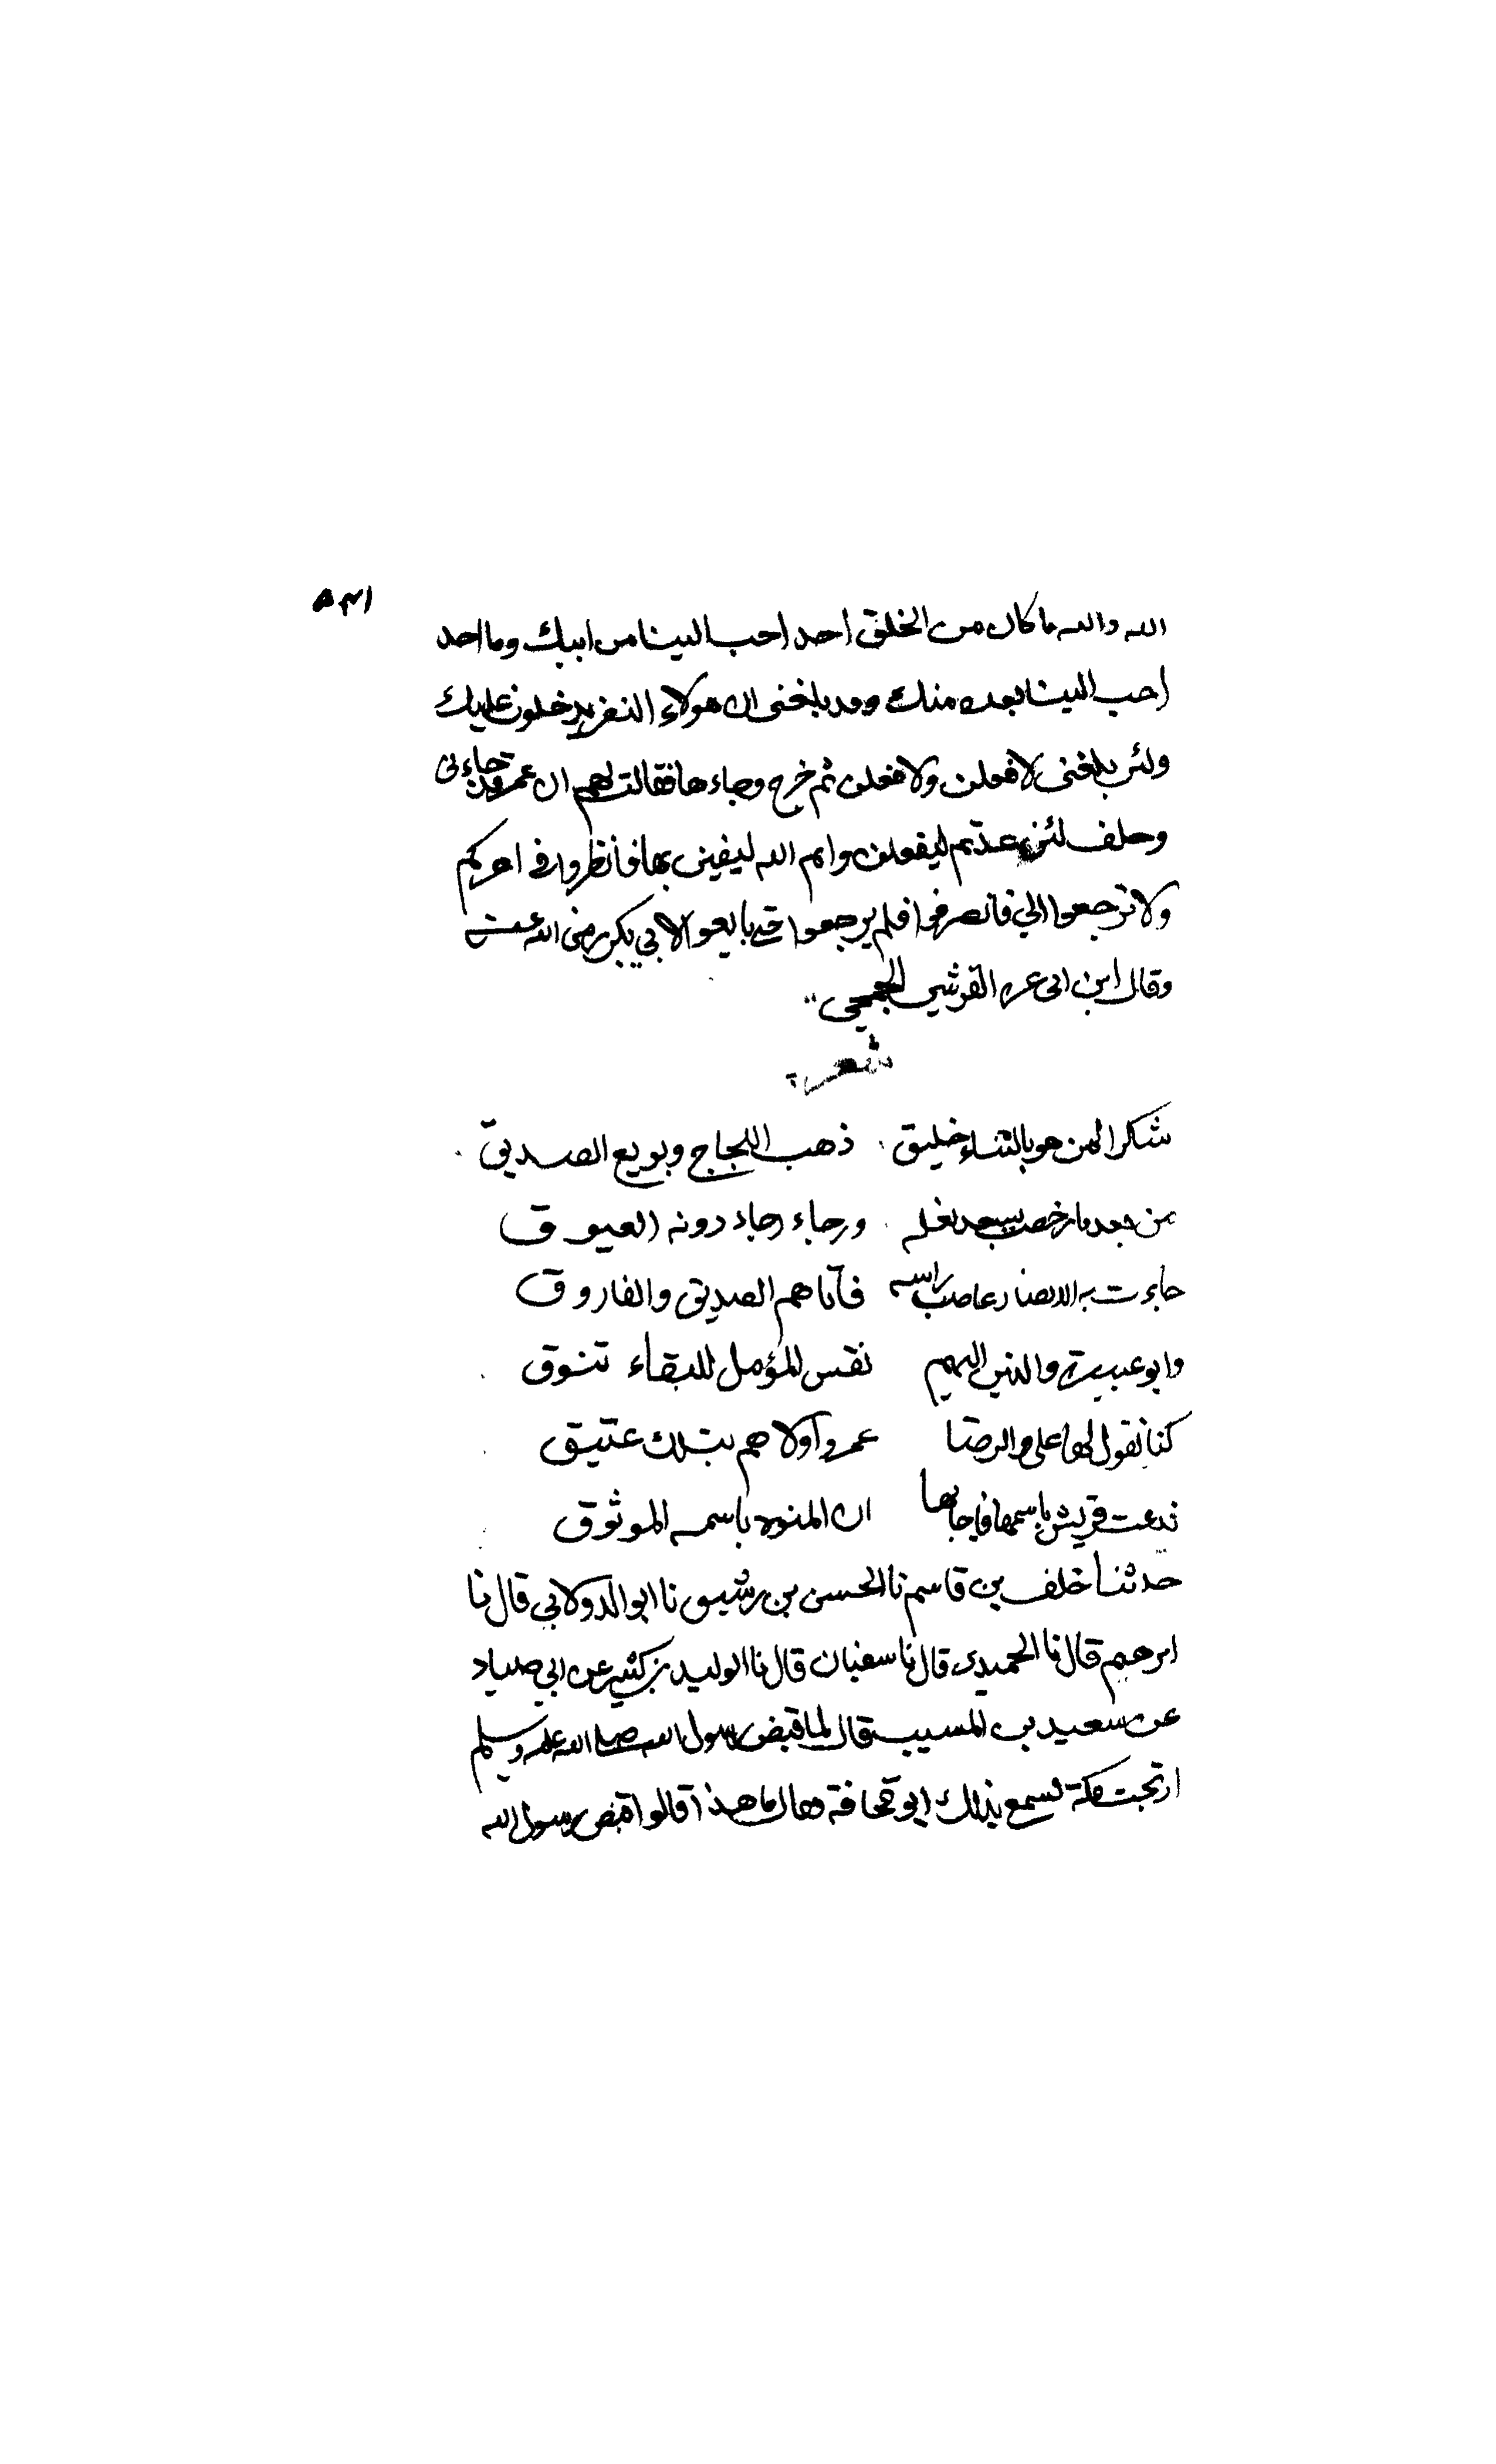 ٥٣١
الله والله ما كان من الخلق احد احب الينا من ابيك وما احد
احب الينا بعده منك وقد بلغنى ان هولاء النفر يدخلون عليك
ولئن بلغنى لافعلن ولافعلن ثم خرج وجاءها فقالت لهم ان عمر قد جاءنى
وحلف لئن عدتم ليفعلن وايم الله ليفين بها فانظروا فى امركم
ولا ترجعوا الي فانصرفوا فلم يرجعوا حتى بايعوا لابي بكر رضى الله عنه
وقال ابن ابى عزه القرشي الجمحي
شعر
شكرا لمن هو بالثناء خليق ذهب اللجاج وبويع الصديق
من بعد ما بسعد نعله ورجاء رجاء دونه العيوق
جاءت به الانصار عاصب راسه فأتاهم الصديق والفاروق
وابو عبيدة والذين اليهم نفس المؤمل للبقاء تتوق
كنا نقول لها علي والرضا عمر وأولاهم بتلك عتيق
فدعت قريش باسمها فاجابها ان المنوه باسمه الموثوق
حدثنا خلف بن قاسم نا الحسن بن رشيق نا ابو الدولابي قال نا
ابرهيم قال نا الحميدى قال نا سفيان قال نا الوليد بن كثير عن ابي صياد
عن سعيد بن المسيب قال لما قبض رسول الله صلى الله عليه وسلم
ارتجت مكة فسمع بذلك ابو قحافة فقال ما هذا قالوا قبض رسول الله